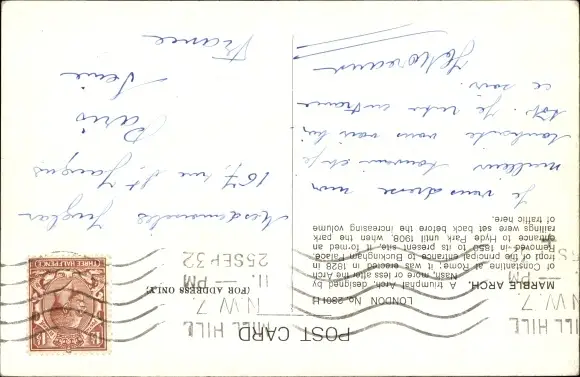 POST CARD
LONDON No. 2301H
MARBLE ARCH. A triumphal Arch, designed by
Nash, more or less after the Arch
of Constantine at Rome; it was erected in 1828 in
front of the principal entrance to Buckingham Palace.
Removed in 1850 to its present site, it formed an
entrance to Hyde Park until 1908, when the park
railings were set back before the increasing volume
of traffic here.
Je vous adresse mon
meilleur souvenir et je
souhaite vous voir
tôt. Je rentre en France
ce soir.
(FOR ADDRESS ONLY.)
MILL HILL
N.W.7.
11 — PM
25 SEP 32
MILL HILL
N.W.7.
PM
THREE HALFPENCE
Mesdemoiselles
167, rue St. Jacques
Paris
France